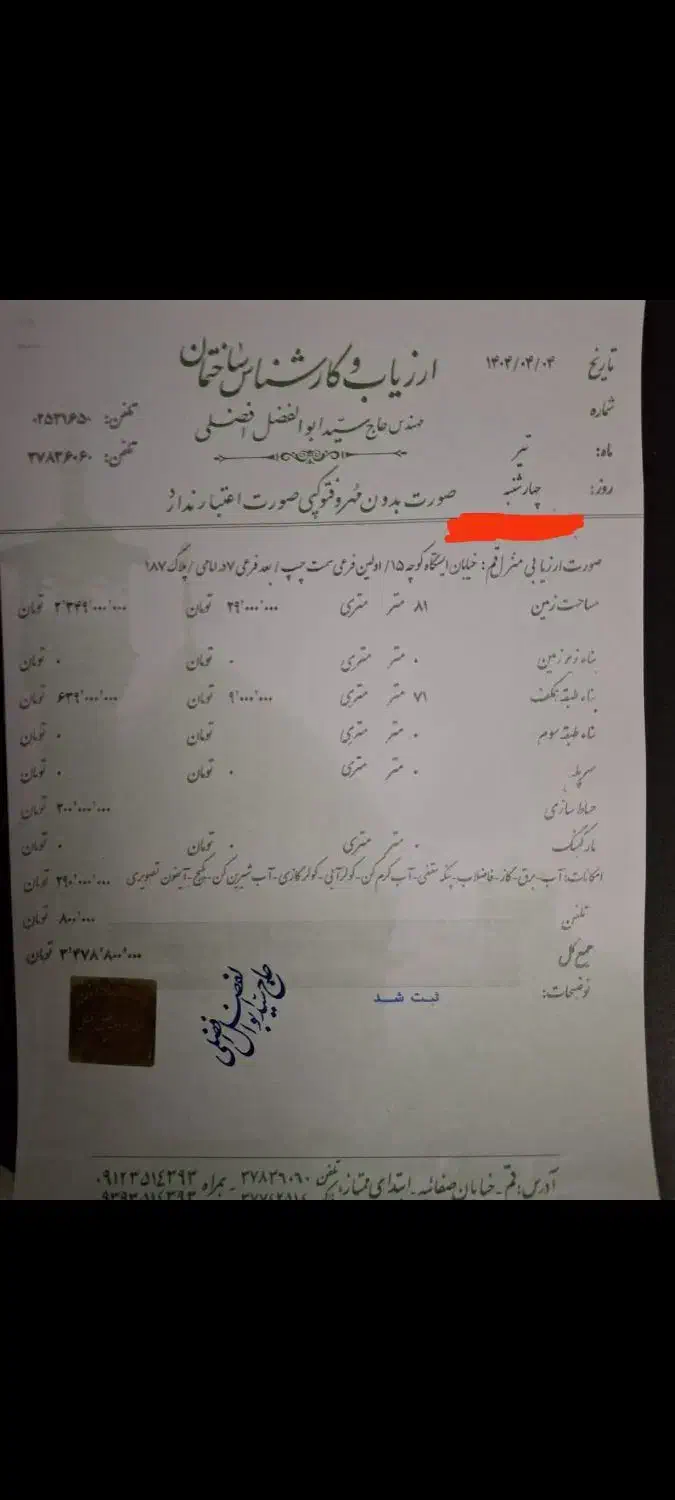 ارزیاب و کارشناس ساختمان
مهندس حاج سیّد ابوالفضل افضلی
تاریخ ۱۴۰۴/۰۴/۰۴
شماره
ماه: تیر
روز: چهارشنبه
تلفن: ۰۲۵۳۱۶۵۰
تلفن: ۳۷۸۳۶۰۶۰
صورت بدون مُهر و فتوکپی صورت اعتبار ندارد
صورت ارزیابی منزل قم: خیابان ایستگاه کوچه ۱۵/ اولین فرعی سمت چپ/ بعد فرعی ۷ در امامی/ پلاک ۱۸۷
مساحت زمین ۸۱ متر متری ۲۹٬۰۰۰٬۰۰۰ تومان ۲٬۳۴۹٬۰۰۰٬۰۰۰ تومان
بناء زیرزمین ۰ متر متری ۰ تومان ۰ تومان
بناء طبقه همکف ۷۱ متر متری ۹٬۰۰۰٬۰۰۰ تومان ۶۳۹٬۰۰۰٬۰۰۰ تومان
بناء طبقه سوم ۰ متر متری تومان ۰ تومان
سرپله ۰ متر متری ۰ تومان ۰ تومان
حیاط سازی ۲۰۰٬۰۰۰٬۰۰۰ تومان
پارکینگ ۰ متر متری ۰ تومان ۰ تومان
امکانات: آب-برق-گاز-فاضلاب-پنکه سقفی-آب گرم کن-کولر آبی-کولر گازی-آب شیرین کن-پکیج-آیفون تصویری ۲۹۰٬۰۰۰٬۰۰۰ تومان
تلفن ۸۰۰٬۰۰۰ تومان
جمع کل ۳٬۴۷۸٬۸۰۰٬۰۰۰ تومان
توضیحات: ثبت شد
حاج سید ابوالفضل افضلی
آدرس: قم - خیابان صفائیه - ابتدای ممتاز، تلفن ۳۷۸۳۶۰۶۰ - همراه ۰۹۱۲۳۵۱۴۳۹۳